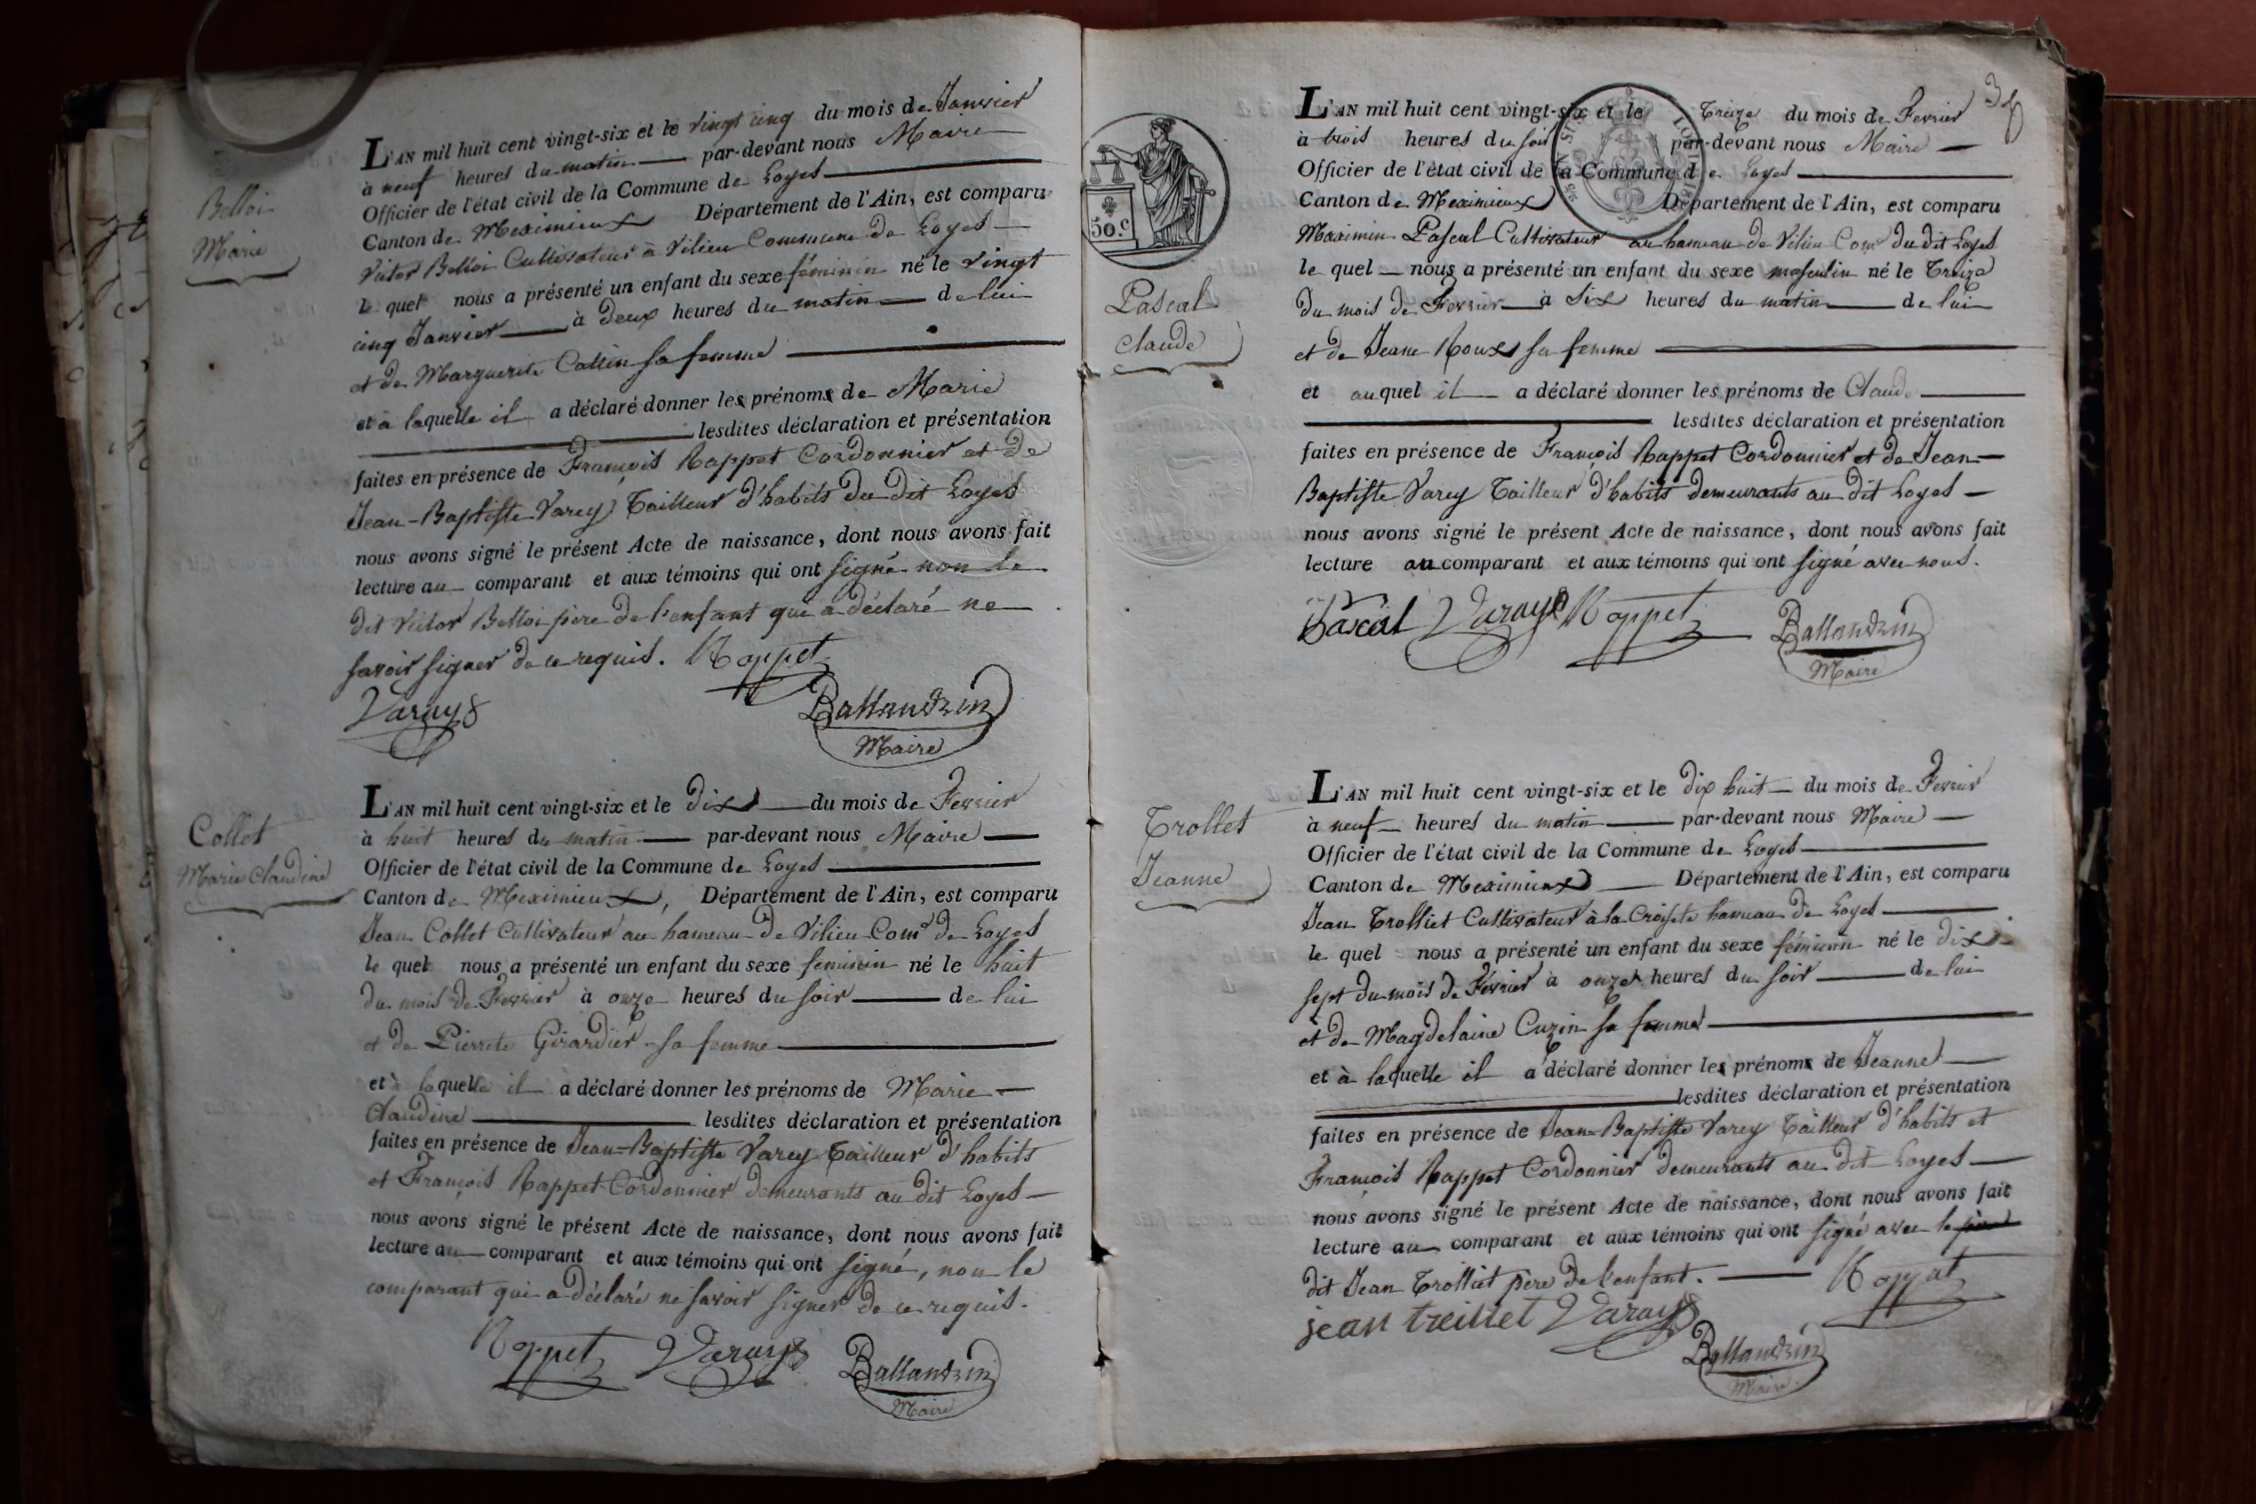 Belloi
Marie
L'AN mil huit cent vingt-six et le vingt cinq du mois de Janvier
à neuf heures du matin par-devant nous Maire
Officier de l'état civil de la Commune de Loyes
Canton de Meximieux Département de l'Ain, est comparu
Victor Belloi Cultivateur à Vilieu Commune de Loyes
le quel nous a présenté un enfant du sexe féminin né le vingt
cinq Janvier à deux heures du matin de lui
et de Marguerite Cattin sa femme
et à laquelle il a déclaré donner les prénoms de Marie
lesdites déclaration et présentation
faites en présence de François Rappet Cordonnier et de
Jean-Baptiste Varey Tailleur d'habits du dit Loyes
nous avons signé le présent Acte de naissance, dont nous avons fait
lecture au comparant et aux témoins qui ont signé non le
dit Victor Belloi père de l'enfant qui a déclaré ne
savoir signer de ce requis. Rappet
Varay
Ballandrin
Maire
Collet
Marie Claudine
L'AN mil huit cent vingt-six et le dix du mois de Fevrier
à huit heures du matin par-devant nous Maire
Officier de l'état civil de la Commune de Loyes
Canton de Meximieux, Département de l'Ain, est comparu
Jean Collet Cultivateur au hameau de Vilieu Com.e de Loyes
le quel nous a présenté un enfant du sexe féminin né le huit
du mois de Fevrier à onze heures du soir de lui
et de Pierrete Girardier sa femme
et à laquelle il a déclaré donner les prénoms de Marie
Claudine lesdites déclaration et présentation
faites en présence de Jean-Baptiste Varey Tailleur d'habits
et François Rappet Cordonnier demeurants au dit Loyes
nous avons signé le présent Acte de naissance, dont nous avons fait
lecture au comparant et aux témoins qui ont signé, non le
comparant qui a déclaré ne savoir signer de ce requis.
Rappet Varay Ballandrin
Maire
50.c
Pascal
Claude
L'AN mil huit cent vingt-six et le Treize du mois de Fevrier
à trois heures du soir par-devant nous Maire
Officier de l'état civil de la Commune de Loyes
Canton de Meximieux Département de l'Ain, est comparu
Maximin Pascal Cultivateur au hameau de Vilieu Com.e du dit Loyes
le quel nous a présenté un enfant du sexe masculin né le Treize
du mois de Fevrier à Six heures du matin de lui
et de Jeane Roux sa femme
et auquel il a déclaré donner les prénoms de Claude
lesdites déclaration et présentation
faites en présence de François Rappet Cordonnier et de Jean
Baptiste Varey Tailleur d'habits demeurants au dit Loyes
nous avons signé le présent Acte de naissance, dont nous avons fait
lecture au comparant et aux témoins qui ont signé avec nous.
Pascal Varay Rappet Ballandrin
Maire
Trollet
Jeanne
L'AN mil huit cent vingt-six et le dix huit du mois de Fevrier
à neuf heures du matin par-devant nous Maire
Officier de l'état civil de la Commune de Loyes
Canton de Meximieux Département de l'Ain, est comparu
Jean Trolliet Cultivateur à la Croisete hameau de Loyes
le quel nous a présenté un enfant du sexe féminin né le dix
sept du mois de Fevrier à onze heures du soir de lui
et de Magdelaine Cuzin sa femme
et à laquelle il a déclaré donner les prénoms de Jeanne
lesdites déclaration et présentation
faites en présence de Jean-Baptiste Varey Tailleur d'habits et
François Rappet Cordonnier demeurants au dit Loyes
nous avons signé le présent Acte de naissance, dont nous avons fait
lecture au comparant et aux témoins qui ont signé avec le
dit Jean Trolliet père de l'enfant. Rappet
jean treillet Varay
Ballandrin
Maire